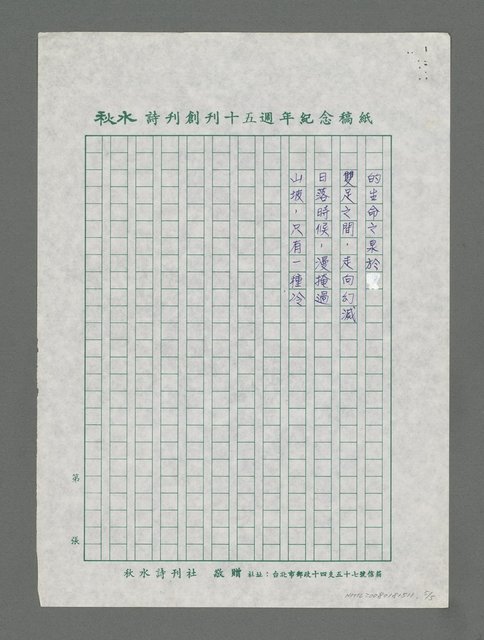 秋水詩刊創刊十五週年紀念稿紙
的生命之泉於
雙足之間,走向幻滅
日落時候,漫掩過
山坡,只有一種冷
第
張
秋水詩刊社 敬贈 社址:台北市郵政十四支五十七號信箱